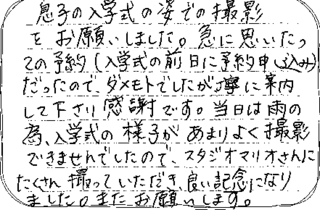 息子の入学式の姿での撮影
をお願いしました。急に思いたっ
ての予約(入学式の前日に予約申し込み)
だったので、ダメモトでしたが丁寧に案内
して下さり感謝です。当日は雨の
為、入学式の様子があまりよく撮影
できませんでしたので、スタジオマリオさんに
たくさん撮っていただき、良い記念になり
ました。またお願いします。